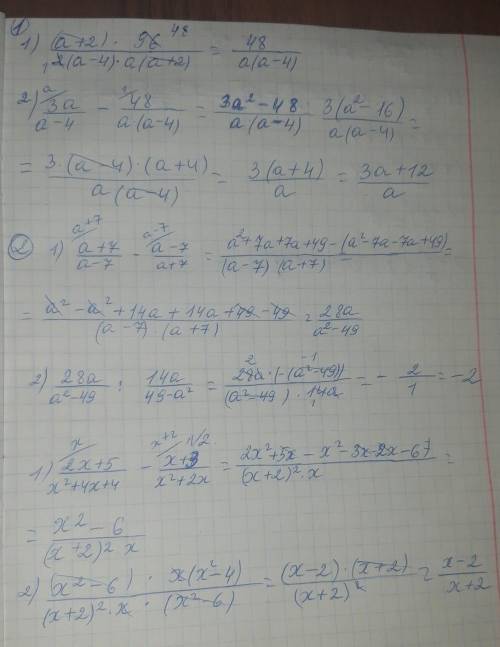 ①
1) (a+2) · 96 48 / 1 2(a-4) · a(a+2) = 48 / a(a-4)
2) a/ 3a / a-4 - 1/ 48 / a(a-4) = 3a² - 48 / a(a-4) 3(a²-16) / a(a-4) =
= 3·(a-4)·(a+4) / a(a-4) = 3(a+4) / a = 3a+12 / a
② 1) a+7/ a+7 / a-7 - a-7/ a-7 / a+7 = a²+7a+7a+49-(a²-7a-7a+49) / (a-7)(a+7) =
= a² - a² + 14a + 14a + 49 - 49 / (a-7)(a+7) = 28a / a²-49
2) 28a / a²-49 : 14a / 49-a² = 2 28a · (-(a²-49)) -1 / (a²-49) · 14a 1 = - 2 / 1 = -2
№2.
1) x/ 2x+5 / x²+4x+4 - x+2/ x+3 / x²+2x = 2x²+5x - x² - 3x - 2x - 6 / (x+2)² · x =
= x² - 6 / (x+2)² x
2) (x²-6) · x(x²-4) / (x+2)² · x · (x²-6) = (x-2)·(x+2) / (x+2)² = x-2 / x+2